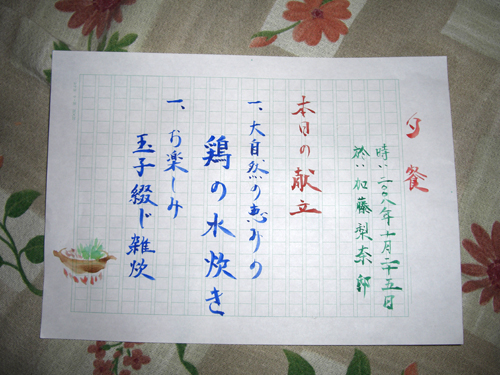 夕餐
時:二〇〇八年十月二十五日
於:加藤梨奈邸
本日の献立
一、大自然の恵みの
鶏の水炊き
一、お楽しみ
玉子綴じ雑炊